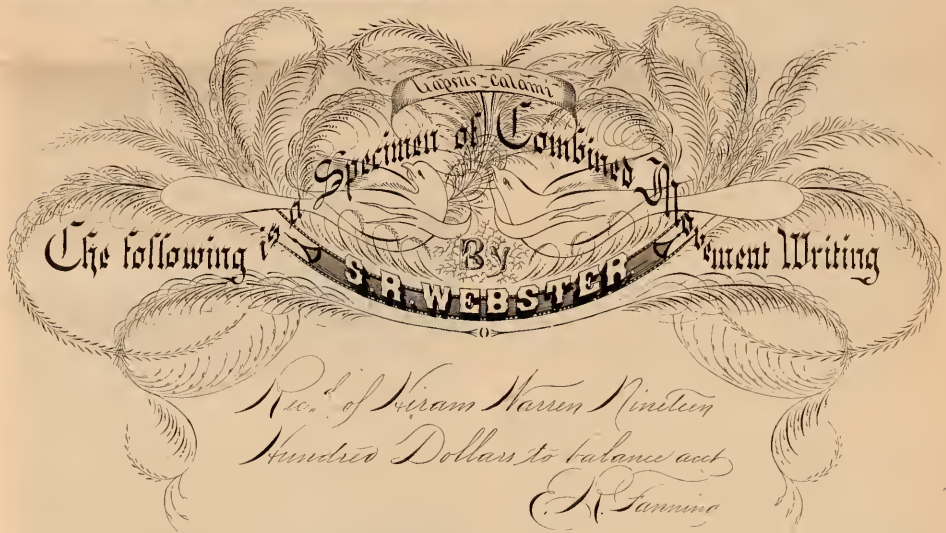 Lapsus-Calami
The following is a Specimen of Combined Movement Writing
By
S.R. WEBSTER.
Rec.d of Hiram Warren Nineteen
Hundred Dollars to balance acct
E. R. Fanning